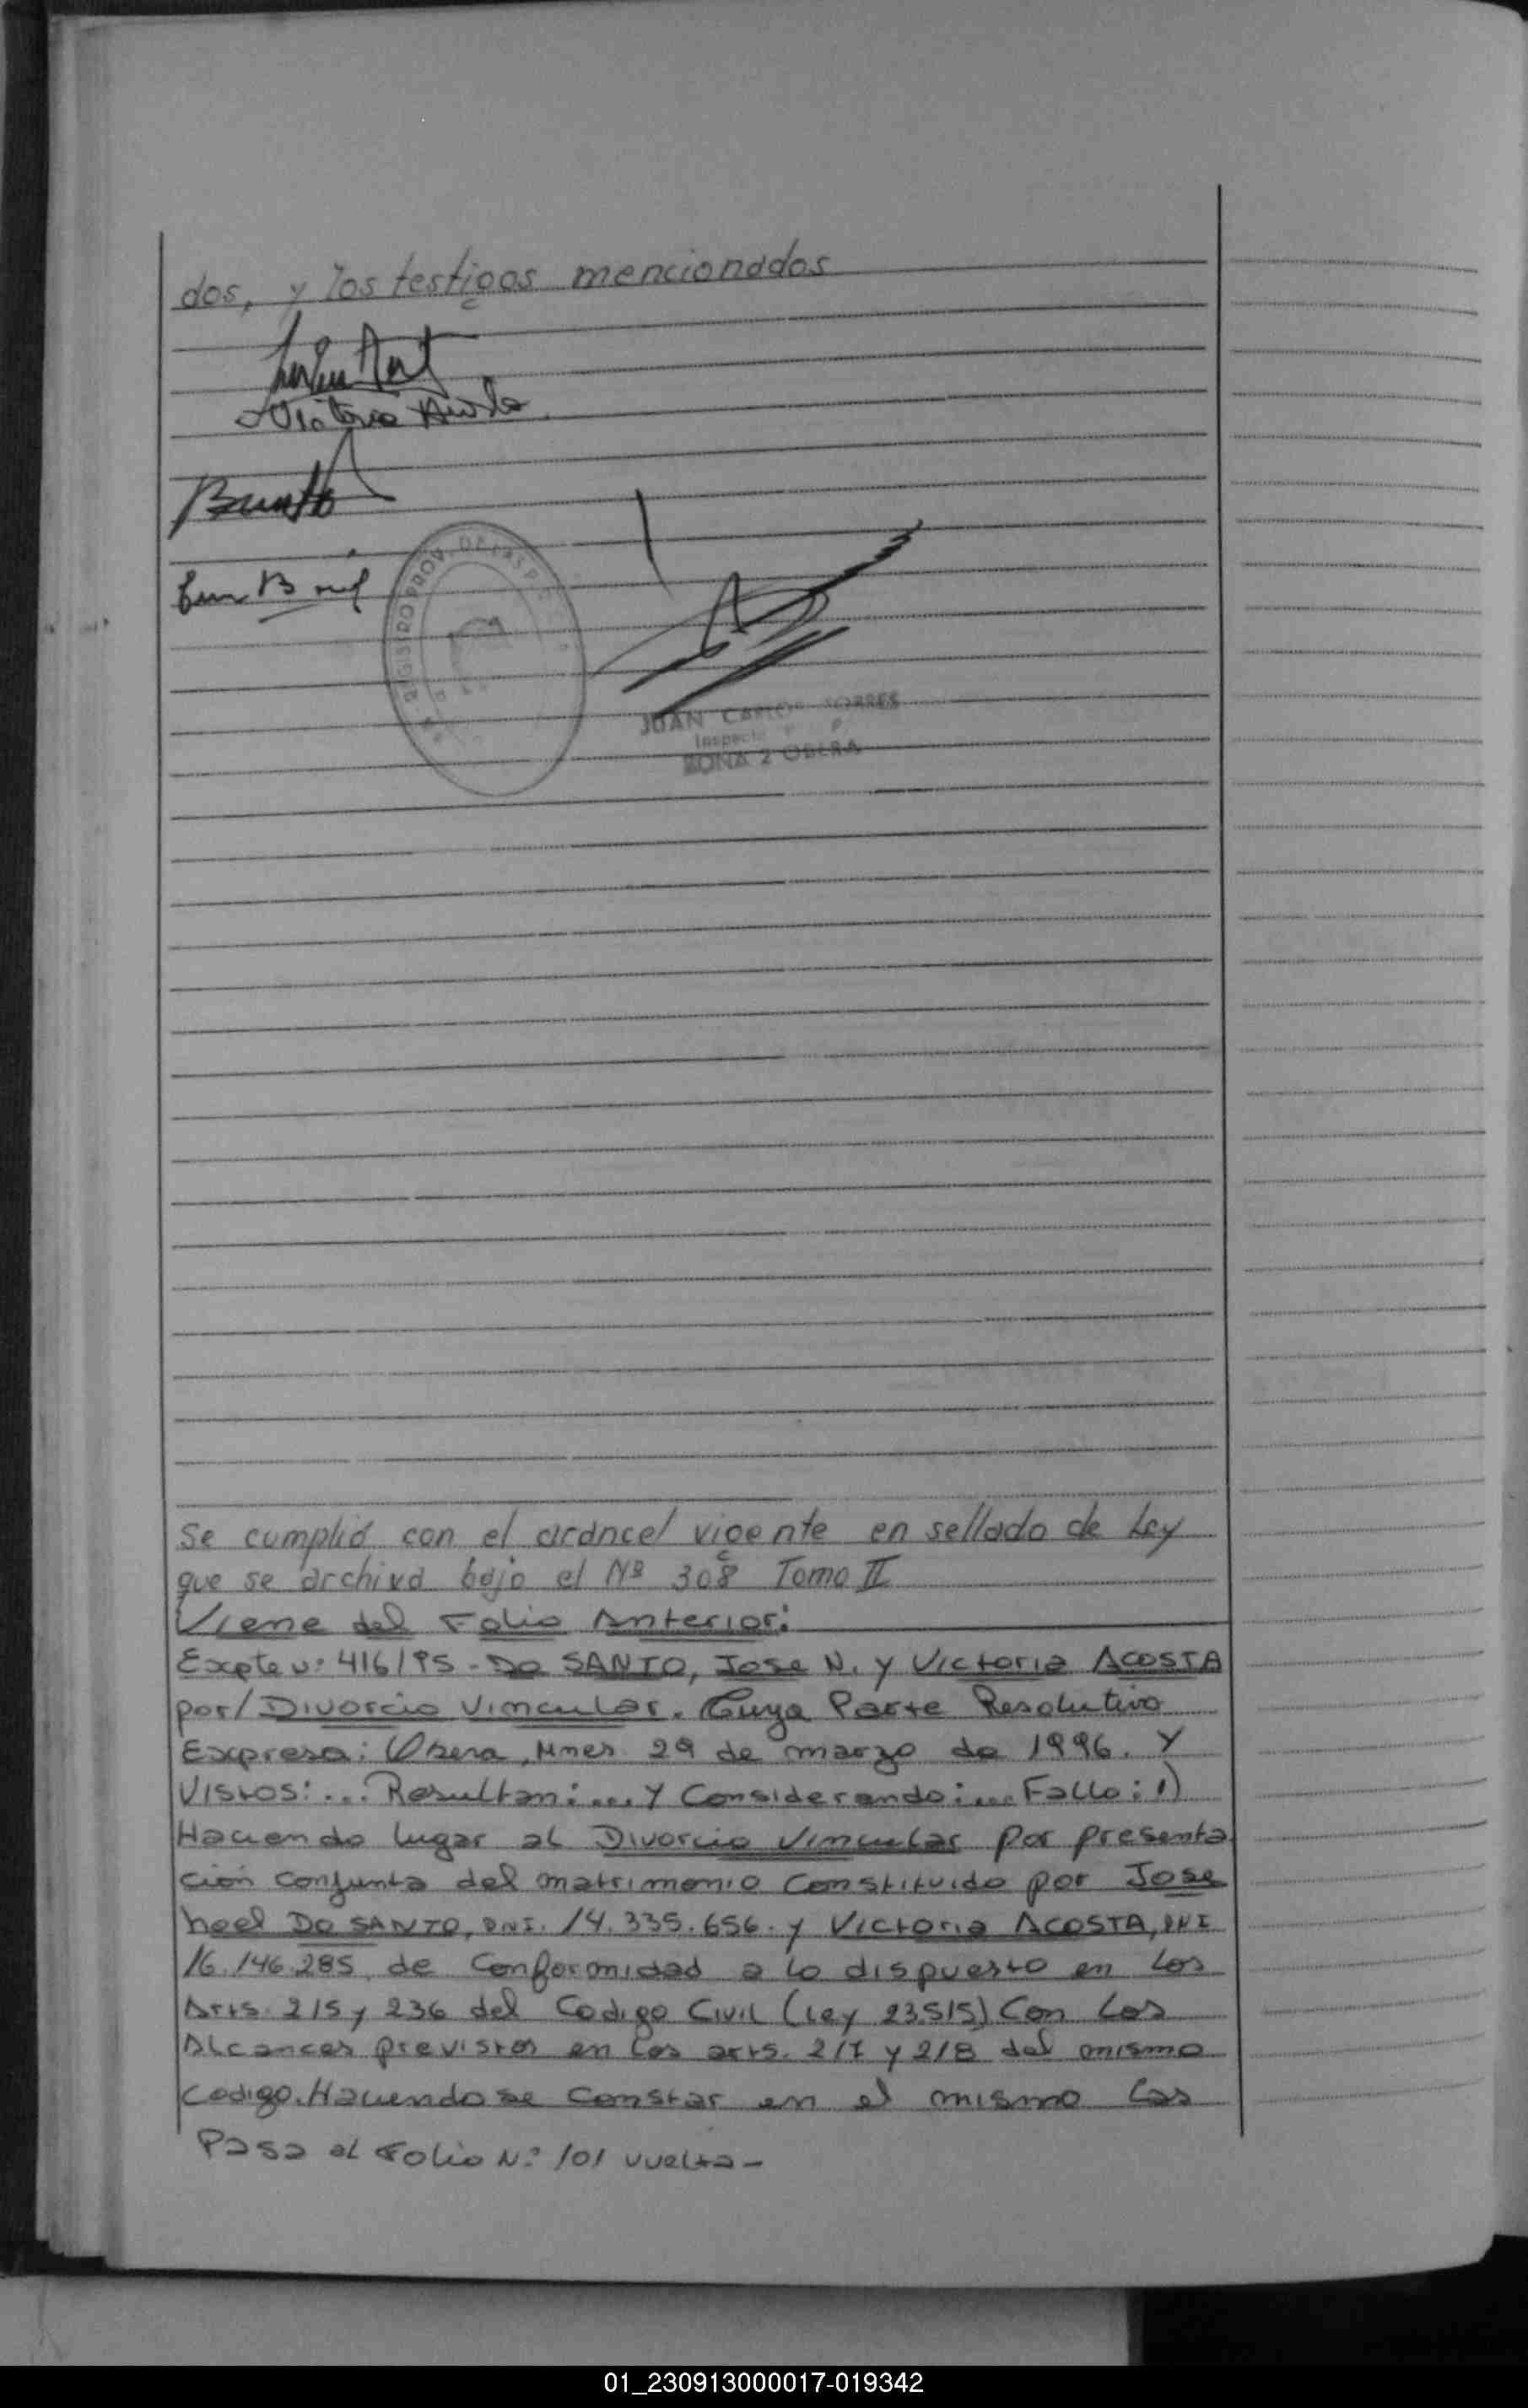 dos, y los testigos mencionados
Victoria Acosta
REGISTRO PROV. DE LAS P
JUAN CARLOS TORRES
Inspector
ZONA 2 OBERA
Se cumplió con el arancel vigente en sellado de Ley
que se archiva bajo el Nº 308 Tomo II
Viene del Folio Anterior:
Expte Nº 416/95 - Do SANTO, Jose N. y Victoria ACOSTA
por/ Divorcio Vincular. Cuya Parte Resolutiva
Expresa: Obera, Mnes. 29 de marzo de 1996. Y
Vistos:... Resultan:... Y Considerando:... Fallo: 1)
Haciendo lugar al Divorcio Vincular por presenta
ción conjunta del matrimonio Constituido por Jose
Noel Do SANTO, DNI. 14.335.656. y Victoria ACOSTA, DNI
16.146.285, de Conformidad a lo dispuesto en los
Arts. 215 y 236 del Codigo Civil (Ley 23.515) Con los
Alcances previstos en los arts. 217 y 218 del mismo
Codigo. Haciendose Constar en el mismo las
Pasa al Folio Nº 101 vuelta -
01_230913000017-019342